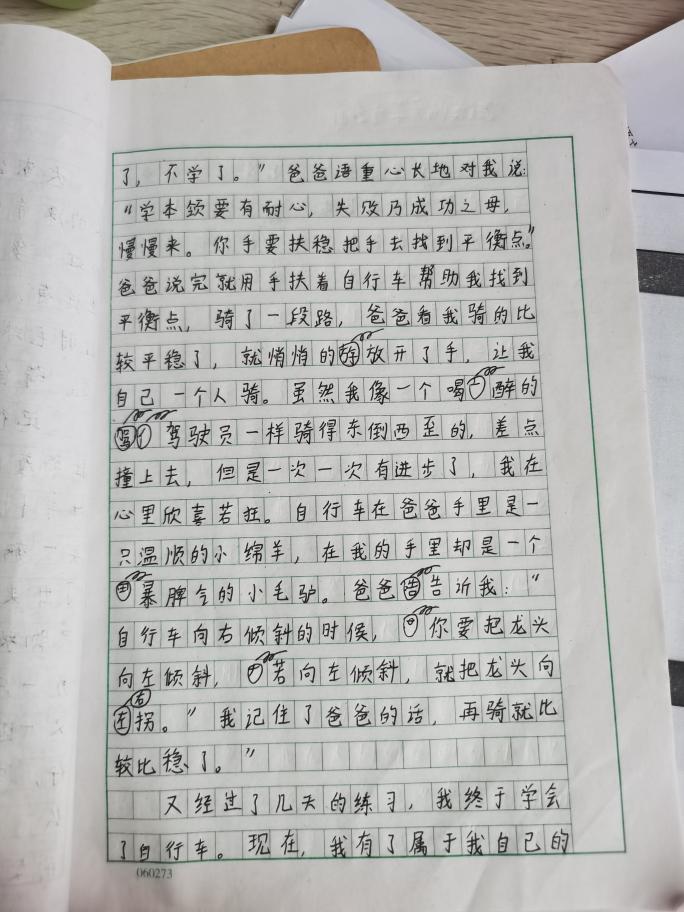 了,不学了。”爸爸语重心长地对我说:
“学本领要有耐心,失败乃成功之母,
慢慢来。你手要扶稳把手去找到平衡点。”
爸爸说完就用手扶着自行车帮助我找到
平衡点,骑了一段路,爸爸看我骑的比
较平稳了,就悄悄的放开了手,让我
自己一个人骑。虽然我像一个喝醉的
驾驶员一样骑得东倒西歪的,差点
撞上去,但是一次一次有进步了,我在
心里欣喜若狂。自行车在爸爸手里是一
只温顺的小绵羊,在我的手里却是一个
暴脾气的小毛驴。爸爸告诉我:“
自行车向右倾斜的时候,你要把龙头
向左倾斜,若向左倾斜,就把龙头向
右拐。”我记住了爸爸的话,再骑就比
较比稳了。”
又经过了几天的练习,我终于学会
了自行车。现在,我有了属于我自己的
060273